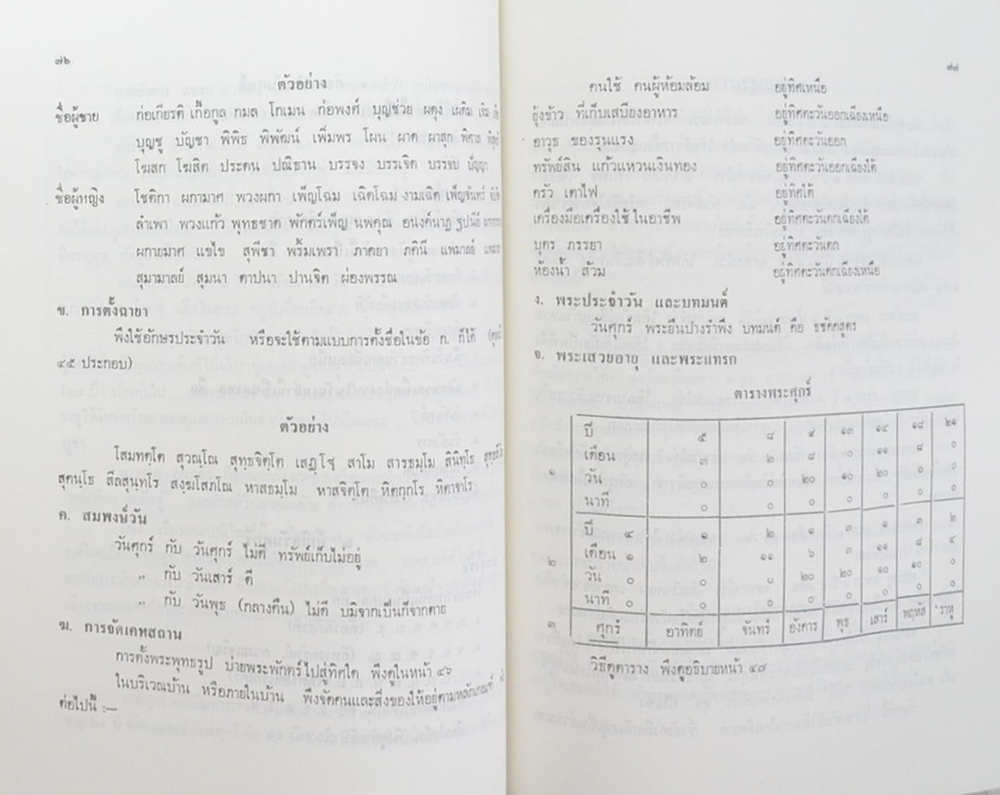 ๗๖
ตัวอย่าง
ชื่อผู้ชาย ก่อเกียรติ เกื้อกูล กมล โกเมน ก่อพงศ์ บุญช่วย ผดุง เผดิม
บุญชู บัญชา พิพิธ พิพัฒน์ เพิ่มพร โผน ผาด ผาสุก
โฆสก โฆสิต ประดน ปณิธาน บรรจง บรรเจิด บรรจบ
ชื่อผู้หญิง โชติกา ผกามาศ พวงผกา เพ็ญโฉม เฉิดโฉม งามเฉิด เพ็ญจันทร์
ลำเพา พวงแก้ว พุทธชาด พักตร์เพ็ญ นพคุณ อนงค์นาฏ
ผกายมาศ แขไข สุพีชา พริ้มเพรา ภาคยา ภคินี
สุมามาลย์ สุมนา ตาปนา ปานจิต ผ่องพรรณ
ข. การตั้งฉายา
พึงใช้อักษรประจำวัน หรือจะใช้ตามแบบการตั้งชื่อในข้อ ก. ก็ได้
๔๕ ประกอบ)
ตัวอย่าง
โสมทตฺโต สุวณฺโณ สุทฺธจิตฺโต เสฏฺโฐ สาโม สารธมฺโม สินิทฺโธ
สุคนฺโธ สีลสุนฺทโร สงฺฆโสภโณ หาสธมฺโม หาสจิตฺโต หิตกฺกโร หิตาจาโร
ค. สมพงษ์วัน
วันศุกร์ กับ วันศุกร์ ไม่ดี ทรัพย์เก็บไม่อยู่
" กับ วันเสาร์ ดี
" กับ วันพุธ (กลางคืน) ไม่ดี ปมิจากเป็นก็จากตาย
ฆ. การจัดเคหสถาน
การตั้งพระพุทธรูป บ่ายพระพักตร์ไปสู่ทิศใด พึงดูในหน้า ๔๖
ในบริเวณบ้าน หรือภายในบ้าน พึงจัดคนและสิ่งของให้อยู่ตามหลักเกณฑ์
ต่อไปนี้ :—
คนใช้ คนผู้ห้อมล้อม อยู่ทิศเหนือ
ยุ้งข้าว ที่เก็บเสบียงอาหาร อยู่ทิศตะวันออกเฉียงเหนือ
อาวุธ ของรุนแรง อยู่ทิศตะวันออก
ทรัพย์สิน แก้วแหวนเงินทอง อยู่ทิศตะวันออกเฉียงใต้
ครัว เตาไฟ อยู่ทิศใต้
เครื่องมือเครื่องใช้ในอาชีพ อยู่ทิศตะวันตกเฉียงใต้
บุตร ภรรยา อยู่ทิศตะวันตก
ห้องน้ำ ส้วม อยู่ทิศตะวันตกเฉียงเหนือ
ง. พระประจำวัน และบทมนต์
วันศุกร์ พระยืนปางรำพึง บทมนต์ คือ ธชัคคสูตร
จ. พระเสวยอายุ และพระแทรก
ตารางพระศุกร์
ปี ๕ ๘ ๙ ๑๓ ๑๔ ๑๘ ๒๑
เดือน ๓ ๒ ๘ ๐ ๑๑ ๘ ๐
๑ วัน ๐ ๐ ๒๐ ๑๐ ๒๐ ๐ ๐
นาที ๐ ๐ ๐ ๐ ๐ ๐ ๐
ปี ๔ ๑ ๒ ๑ ๓ ๑ ๓ ๒
เดือน ๑ ๒ ๑๑ ๖ ๓ ๑๑ ๘
๒ วัน ๐ ๐ ๐ ๒๐ ๒๐ ๑๐ ๐ ๐
นาที ๐ ๐ ๐ ๐ ๐ ๐ ๐ ๐
๓ ศุกร์ อาทิตย์ จันทร์ อังคาร พุธ เสาร์ พฤหัส ราหู
วิธีดูตาราง พึงดูอธิบายหน้า ๔๗